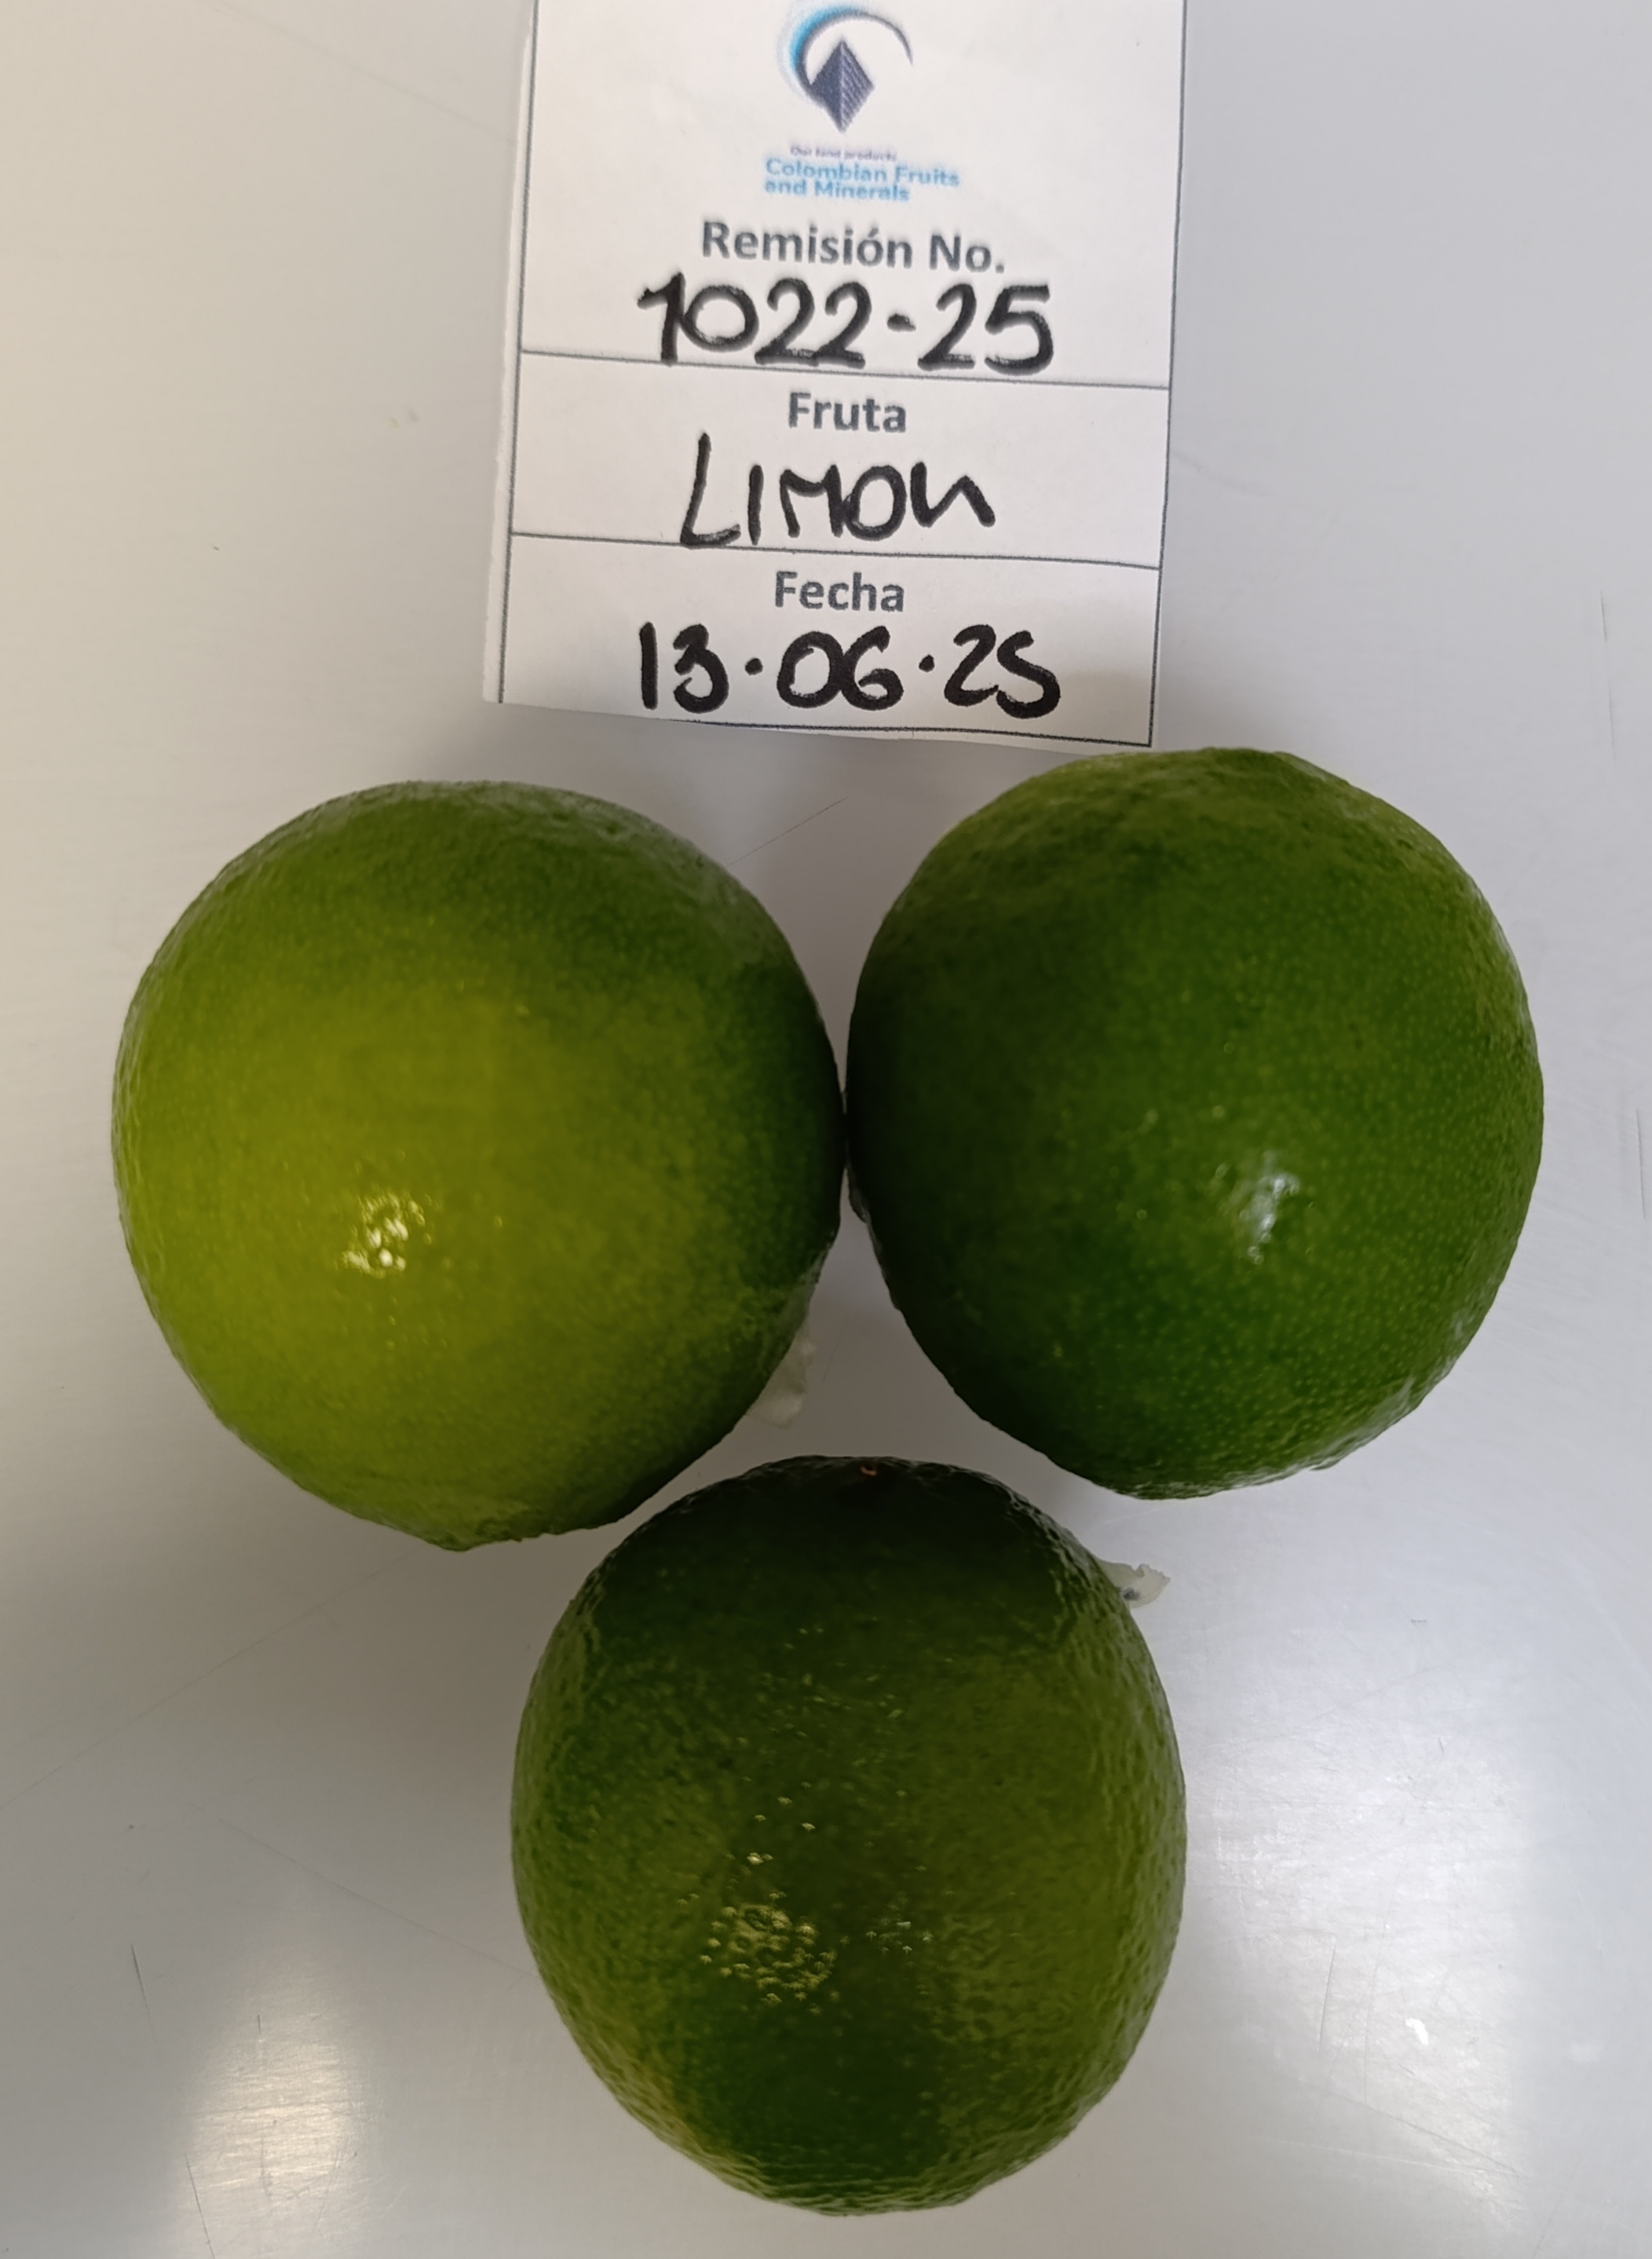 Our land products
Colombian Fruits
and Minerals
Remisión No.
1022-25
Fruta
LIMON
Fecha
13·06·25